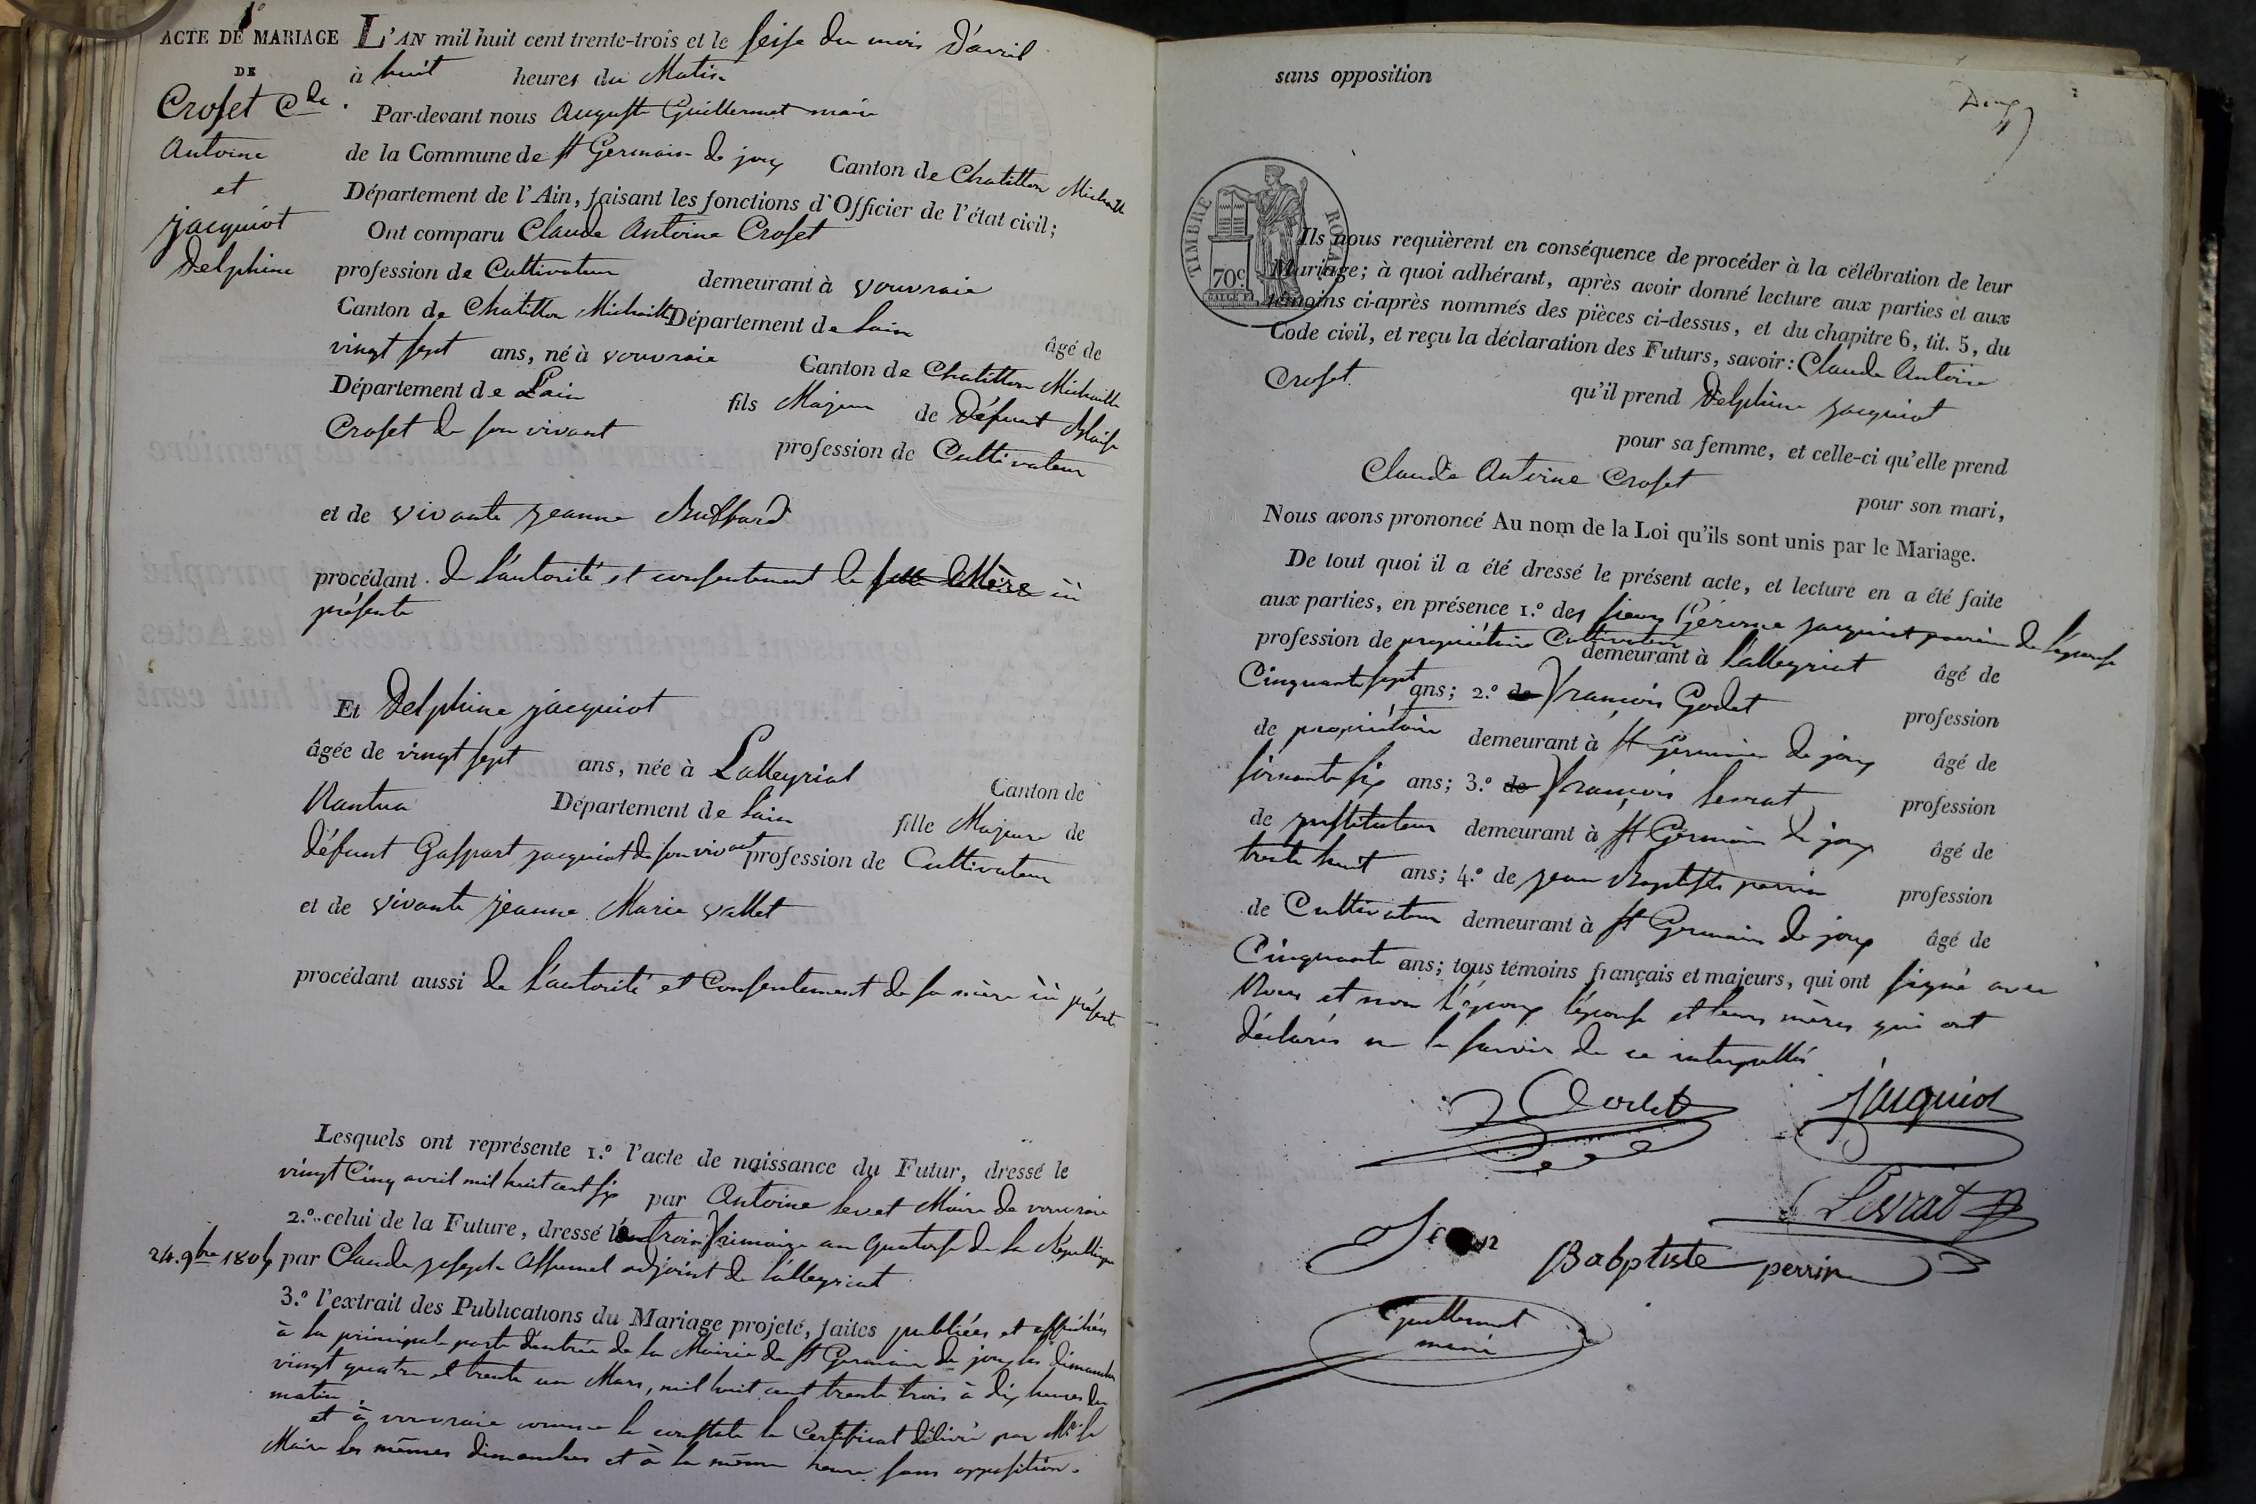 ACTE DE MARIAGE
DE
Croset Cde
Antoine
et
jacquiot
Delphine
L'AN mil huit cent trente-trois et le seise du mois d'avril
à huit heures du Matin
Par-devant nous Auguste Guillermet maire
de la Commune de St Germain de joux Canton de Chatillon Michaille
Département de l'Ain, faisant les fonctions d'Officier de l'état civil;
Ont comparu Claude Antoine Croset
profession de Cultivateur demeurant à vouvraie
Canton de Chatillon Michaille Département de Lain âgé de
vingt sept ans, né à vouvraie Canton de Chatillon Michaille
Département de Lain fils Majeur de Défunt Blaise
Croset de son vivant profession de Cultivateur
et de vivante jeanne
procédant de l'autorité et consentement de sa mère ici
présente
Et Delphine jacquiot
âgée de vingt sept ans, née à Lalleyriat Canton de
Nantua Département de Lain fille Majeure de
défunt Gaspart jacquiot de son vivant profession de Cultivateur
et de vivante jeanne Marie vallet
procédant aussi de l'autorité et Consentement de sa mère ici présente
Lesquels ont représente 1.º l'acte de naissance du Futur, dressé le
vingt Cinq avril mil huit cent six par Antoine levet Maire de vouvraie
2.º celui de la Future, dressé le trois frimaire an quatorse de la République
24. 9bre 180 par Claude joseph adjoint de Lalleyriat
3.º l'extrait des Publications du Mariage projeté, faites publiées et affichées
à la principale porte d'entrée de la Mairie de St Germain de joux les dimanches
vingt quatre et trente un Mars, mil huit cent trente trois à dix heures du
matin
et à vouvraie comme le constate le Certificat délivré par Mr le
Maire les mêmes dimanches et à la même heure sans opposition.
sans opposition
TIMBRE ROYAL
70c.
Ils nous requièrent en conséquence de procéder à la célébration de leur
Mariage; à quoi adhérant, après avoir donné lecture aux parties et aux
témoins ci-après nommés des pièces ci-dessus, et du chapitre 6, tit. 5, du
Code civil, et reçu la déclaration des Futurs, savoir: Claude Antoine
Croset qu'il prend Delphine jacquiot
pour sa femme, et celle-ci qu'elle prend
Claude Antoine Croset pour son mari,
Nous avons prononcé Au nom de la Loi qu'ils sont unis par le Mariage.
De tout quoi il a été dressé le présent acte, et lecture en a été faite
aux parties, en présence 1.º des sieurs Gérome jacquiot parrein de l'épouse
profession de propriétaire Cultivateur demeurant à Lalleyriat âgé de
Cinquante sept ans; 2.º de françois Godet profession
de propriétaire demeurant à St Germain de joux âgé de
soixante six ans; 3.º de françois levrat profession
de jnstituteur demeurant à St Germain de joux âgé de
trente huit ans; 4.º de jean Baptiste perrin profession
de Cultivateur demeurant à St Germain de joux âgé de
Cinquante ans; tous témoins français et majeurs, qui ont signé avec
Nous et non l'époux l'épouse et leurs mères qui ont
déclarés ne le savoir de ce interpellés
Godet jacquiot
Levrat
Jean Babptiste perrin
Guillermet
maire